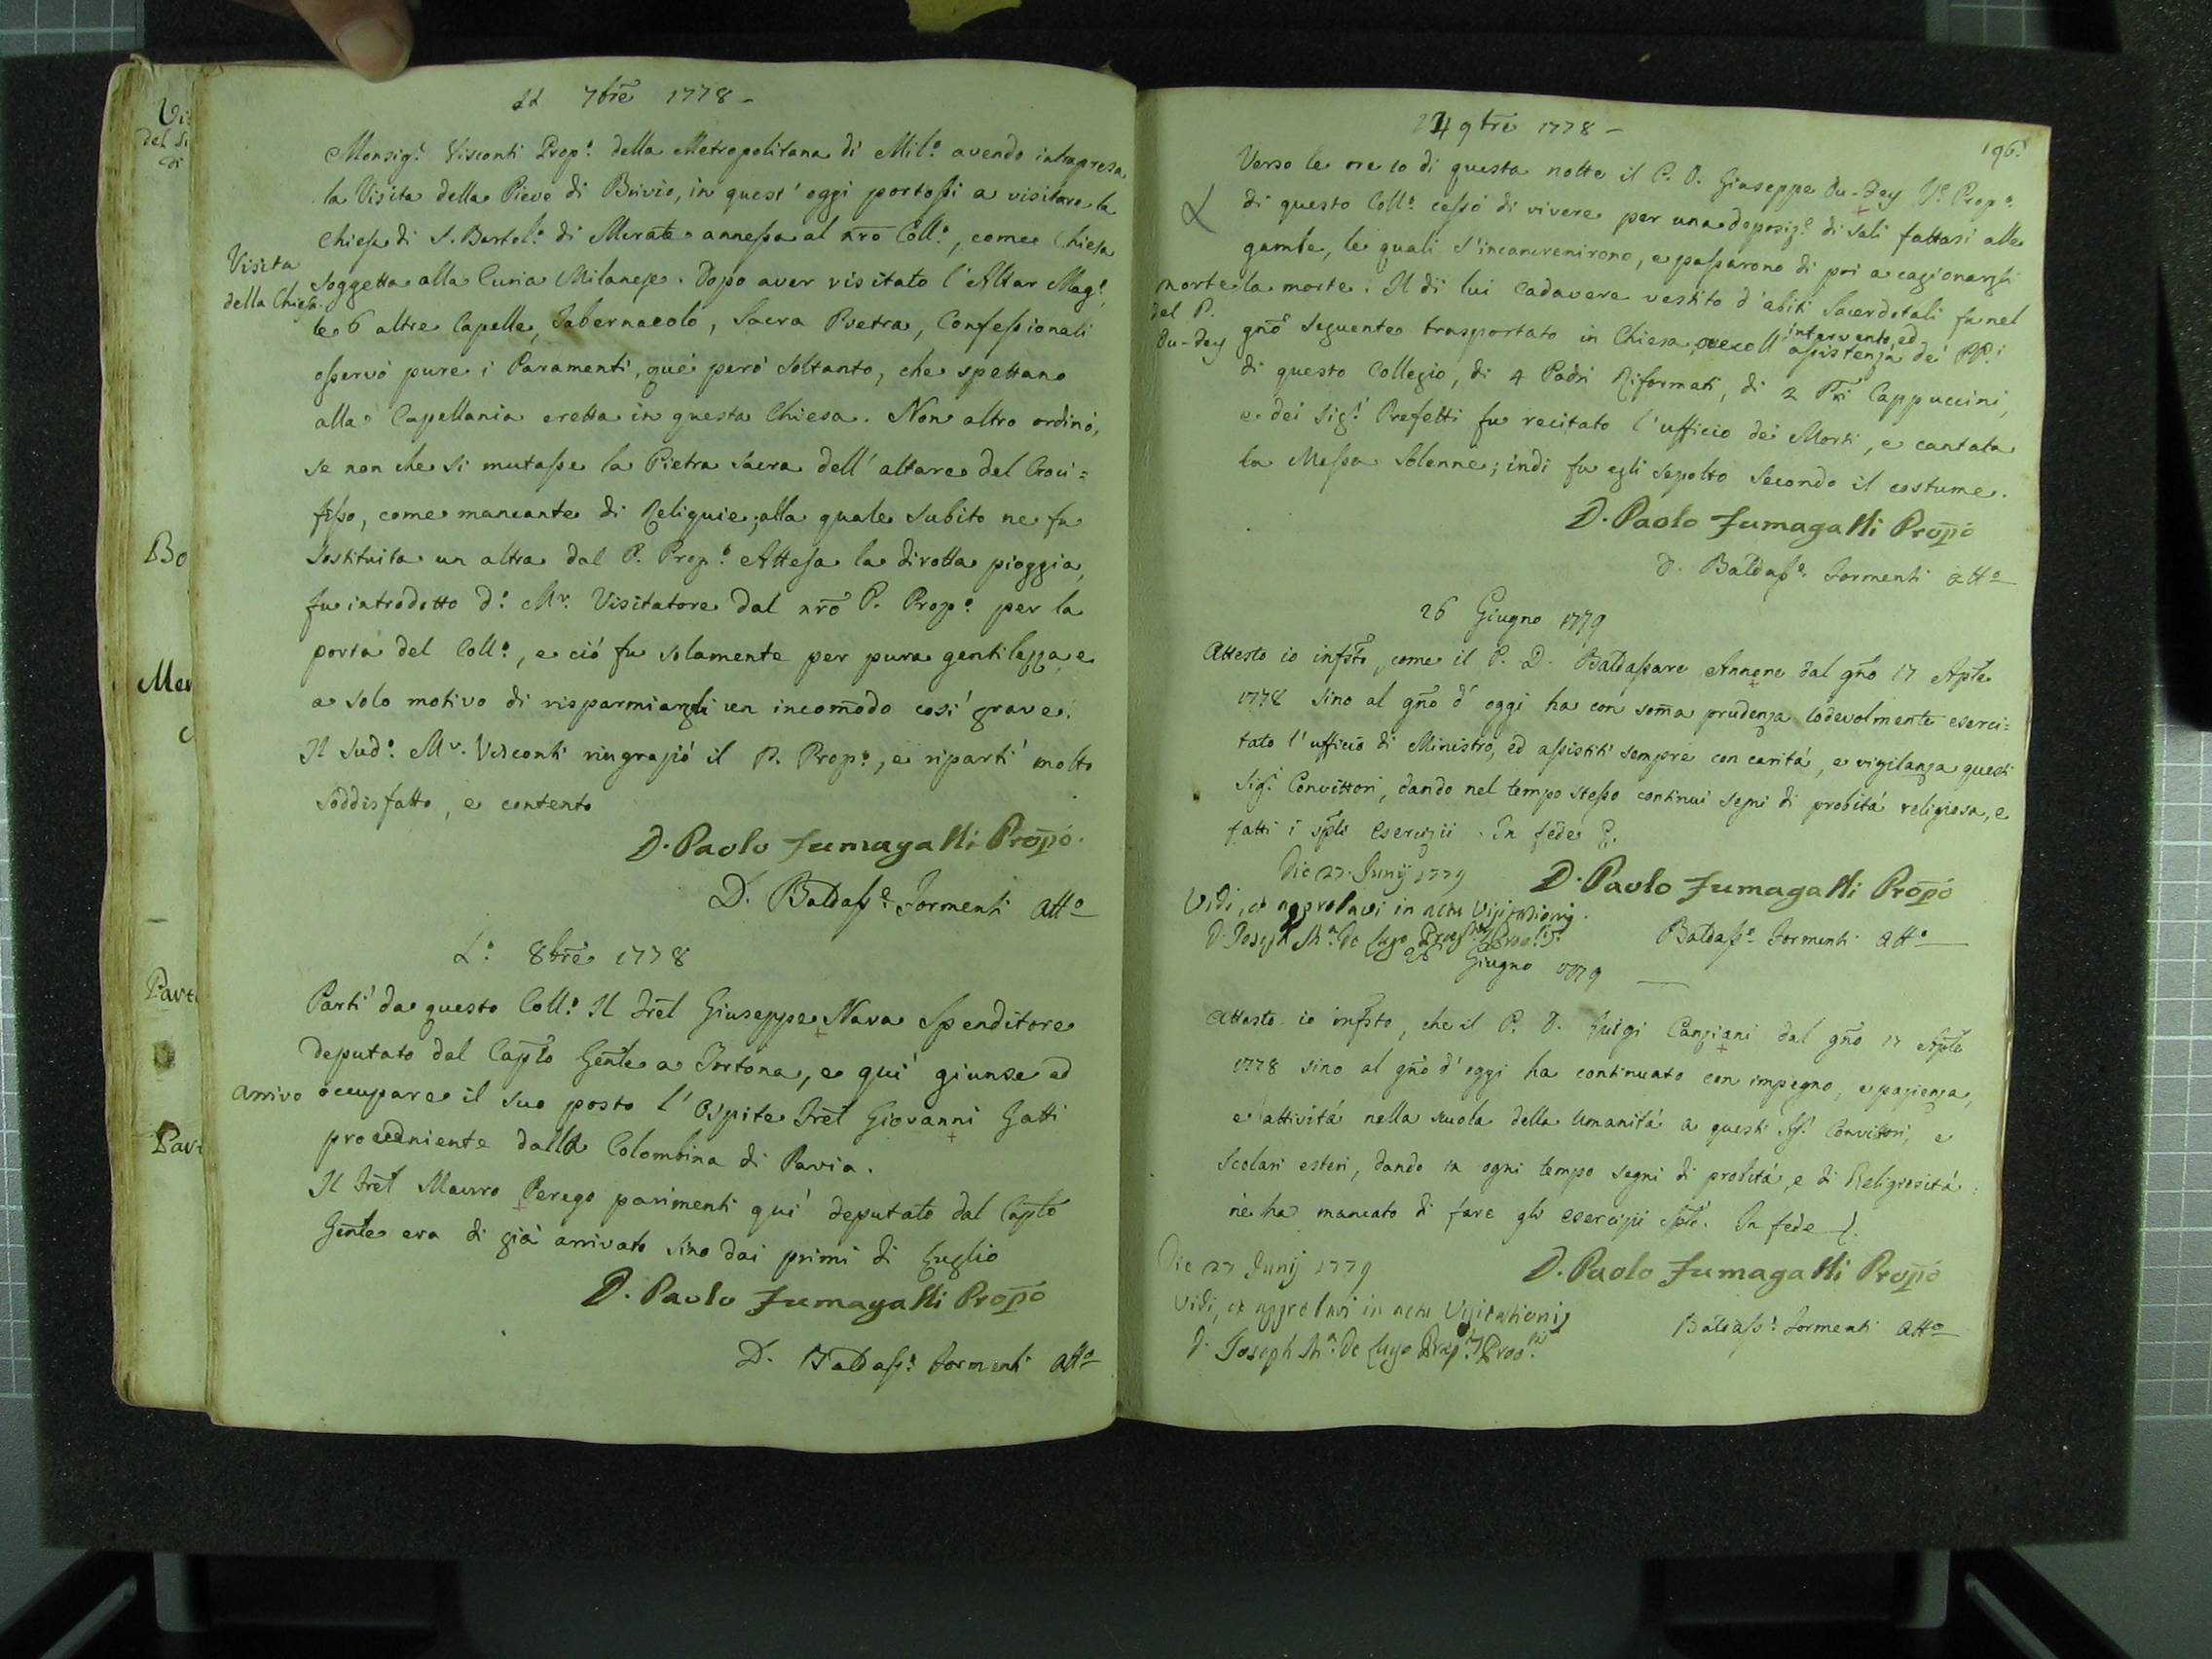 11 7bre 1778 -
Monsig.r Visconti Prop.o della Metropolitana di Mil.o avendo intrapresa
la Visita della Pieve di Brivio, in quest' oggi portossi a visitare la
Chiesa di S. Bartol.o di Merate annessa al nr̃o Coll.o, come Chiesa
Visita
della Chiesa.
soggetta alla Curia Milanese. Dopo aver visitato l'Altar Mag.e,
le 6 altre Capelle, Tabernacolo, Sacra Pietra, Confessionali
osservò pure i Paramenti, què però soltanto, che spettano
alla Capellania eretta in questa Chiesa. Non altro ordinò,
se non che si mutasse la Pietra sacra dell' altare del Croci=
fisso, come mancante di Reliquie; alla quale subito ne fu
sostituita un altra dal P. Prop.o Attesa la dirotta pioggia,
fu introdotto d.o Mr. Visitatore dal nr̃o P. Prop.o per la
porta del Coll.o, e ciò fu solamente per pura gentilezza, e
a solo motivo di risparmiargli un incom̃odo così grave.
Il sud.o Mr. Visconti ringraziò il P. Prop.o, e ripartì molto
soddisfatto, e contento
D. Paolo Fumagalli Prop̃o.
D. Baldass.e Tormenti Att.o
8bre 1778
Partì da questo Coll.o Il Frel̃ Giuseppe Nava Spenditore
deputato dal Cap̃lo Gen̄le a Tortona, e quì giunse ad
arrivo
occupare il suo posto l' Ospite Frel̃ Giovanni Gatti
proveniente dalla Colombina di Pavia.
Il Frel̃ Mauro Perego parimenti quì deputato dal Cap̃lo
Gen̄le era di già arrivato sino dai primi di Luglio
D. Paolo Fumagalli Prop̃o
D. Baldass.e Tormenti Att.o
196.
24 9bre 1778 -
Verso le ore 10 di questa notte il P. D. Giuseppe Du-Dey V.e Prop.o
di questo Coll.o cessò di vivere per una deposiz.e di sali fattasi alle
gambe, le quali s'incancrenirono, e passarono di poi a cagionargli
morte
del P.
Du-Dey
la morte. Il di lui Cadavere vestito d'abiti Sacerdotali fu nel
gñõ seguente trasportato in Chiesa, coll' intervento, ed assistenza de' PP.i
di questo Collegio, di 4 Padri Riformati, di 2 Cappuccini,
e dei Sig.i Prefetti fu recitato l'ufficio dei Morti, e cantata
la Messa solenne; indi fu egli sepolto secondo il costume.
D. Paolo Fumagalli Prop̃o
D. Baldass.e Tormenti Att.o
26 Giugno 1779
Attesto io infr̃to, come il P. D. Baldassare Annone dal gñõ 17 Aple
1778 sino al gñõ d'oggi ha con som̃a prudenza lodevolmente eserci=
tato l'ufficio di Ministro, ed assistiti sempre con carità, e vigilanza questi
Sig.i Convittori, dando nel tempo stesso continui segni di probità religiosa, e
fatti i sp̃li Esercizii. In fede
Die 27. Junij 1779
D. Paolo Fumagalli Prop̃o
Vidi, et approbavi in actu Visitationis.
D. Joseph M.a De Lugo Praep.s Prov.lis
Baldass.e Tormenti Att.o
26 Giugno 1779
Attesto io infr̃to, che il P. D. Luigi Canziani dal gñõ 17 Aple
1778 sino al gñõ d'oggi ha continuato con impegno, e pazienza,
e attività nella scuola della Umanità a questi SS.i Convittori, e
scolari esteri, dando in ogni tempo segni di probità, e di Religiosità:
nè ha mancato di fare gli esercizii sp̃li. In fede
Die 27 Junij 1779
D. Paolo Fumagalli Prop̃o
Vidi, et approbavi in actu Visitationis
Baldass.e Tormenti Att.o
D. Joseph M.a De Lugo Praep.s Prov.lis